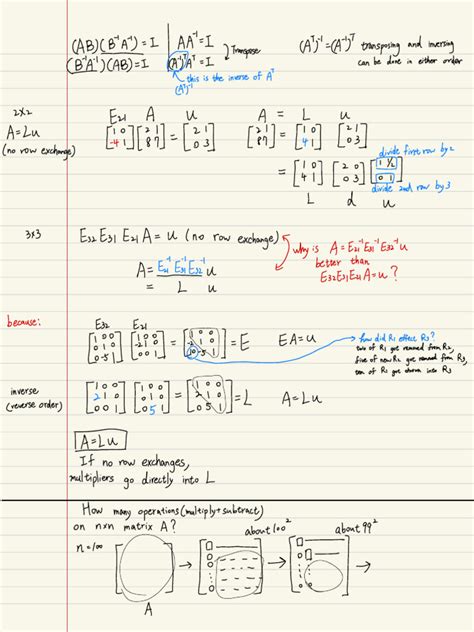 (AB)(B⁻¹A⁻¹) = I
(B⁻¹A⁻¹)(AB) = I
AA⁻¹ = I
(A⁻¹)ᵀAᵀ = I
Transpose
this is the inverse of Aᵀ
(Aᵀ)⁻¹
(Aᵀ)⁻¹ = (A⁻¹)ᵀ transposing and inversing
can be done in either order
2x2
A = Lu
(no row exchange)
E21 A u
[1 0; -4 1] [2 1; 8 7] = [2 1; 0 3]
A = L u
[2 1; 8 7] = [1 0; 4 1] [2 1; 0 3]
divide first row by 2
= [1 0; 4 1] [2 0; 0 3] [1 ½; 0 1]
divide 2nd row by 3
L d u
3x3
E32 E31 E21 A = u (no row exchange)
A = E21⁻¹ E31⁻¹ E32⁻¹ u
= L u
why is A = E21⁻¹E31⁻¹E32⁻¹u
better than
E32E31E21A = u ?
because:
E32 E21
[1 0 0; 0 1 0; 0 -5 1] [1 0 0; -2 1 0; 0 0 1] = [1 0 0; -2 1 0; 10 -5 1] = E EA = u
how did R1 effect R3?
two of R1 got removed from R2,
five of new R2 got removed from R3,
ten of R1 got thrown into R3
inverse
(reverse order)
[1 0 0; 2 1 0; 0 0 1] [1 0 0; 0 1 0; 0 5 1] = [1 0 0; 2 1 0; 0 5 1] = L A = Lu
A = Lu
If no row exchanges,
multipliers go directly into L
How many operations (multiply + subtract)
on nxn matrix A?
about 100²
about 99²
n = 100
A